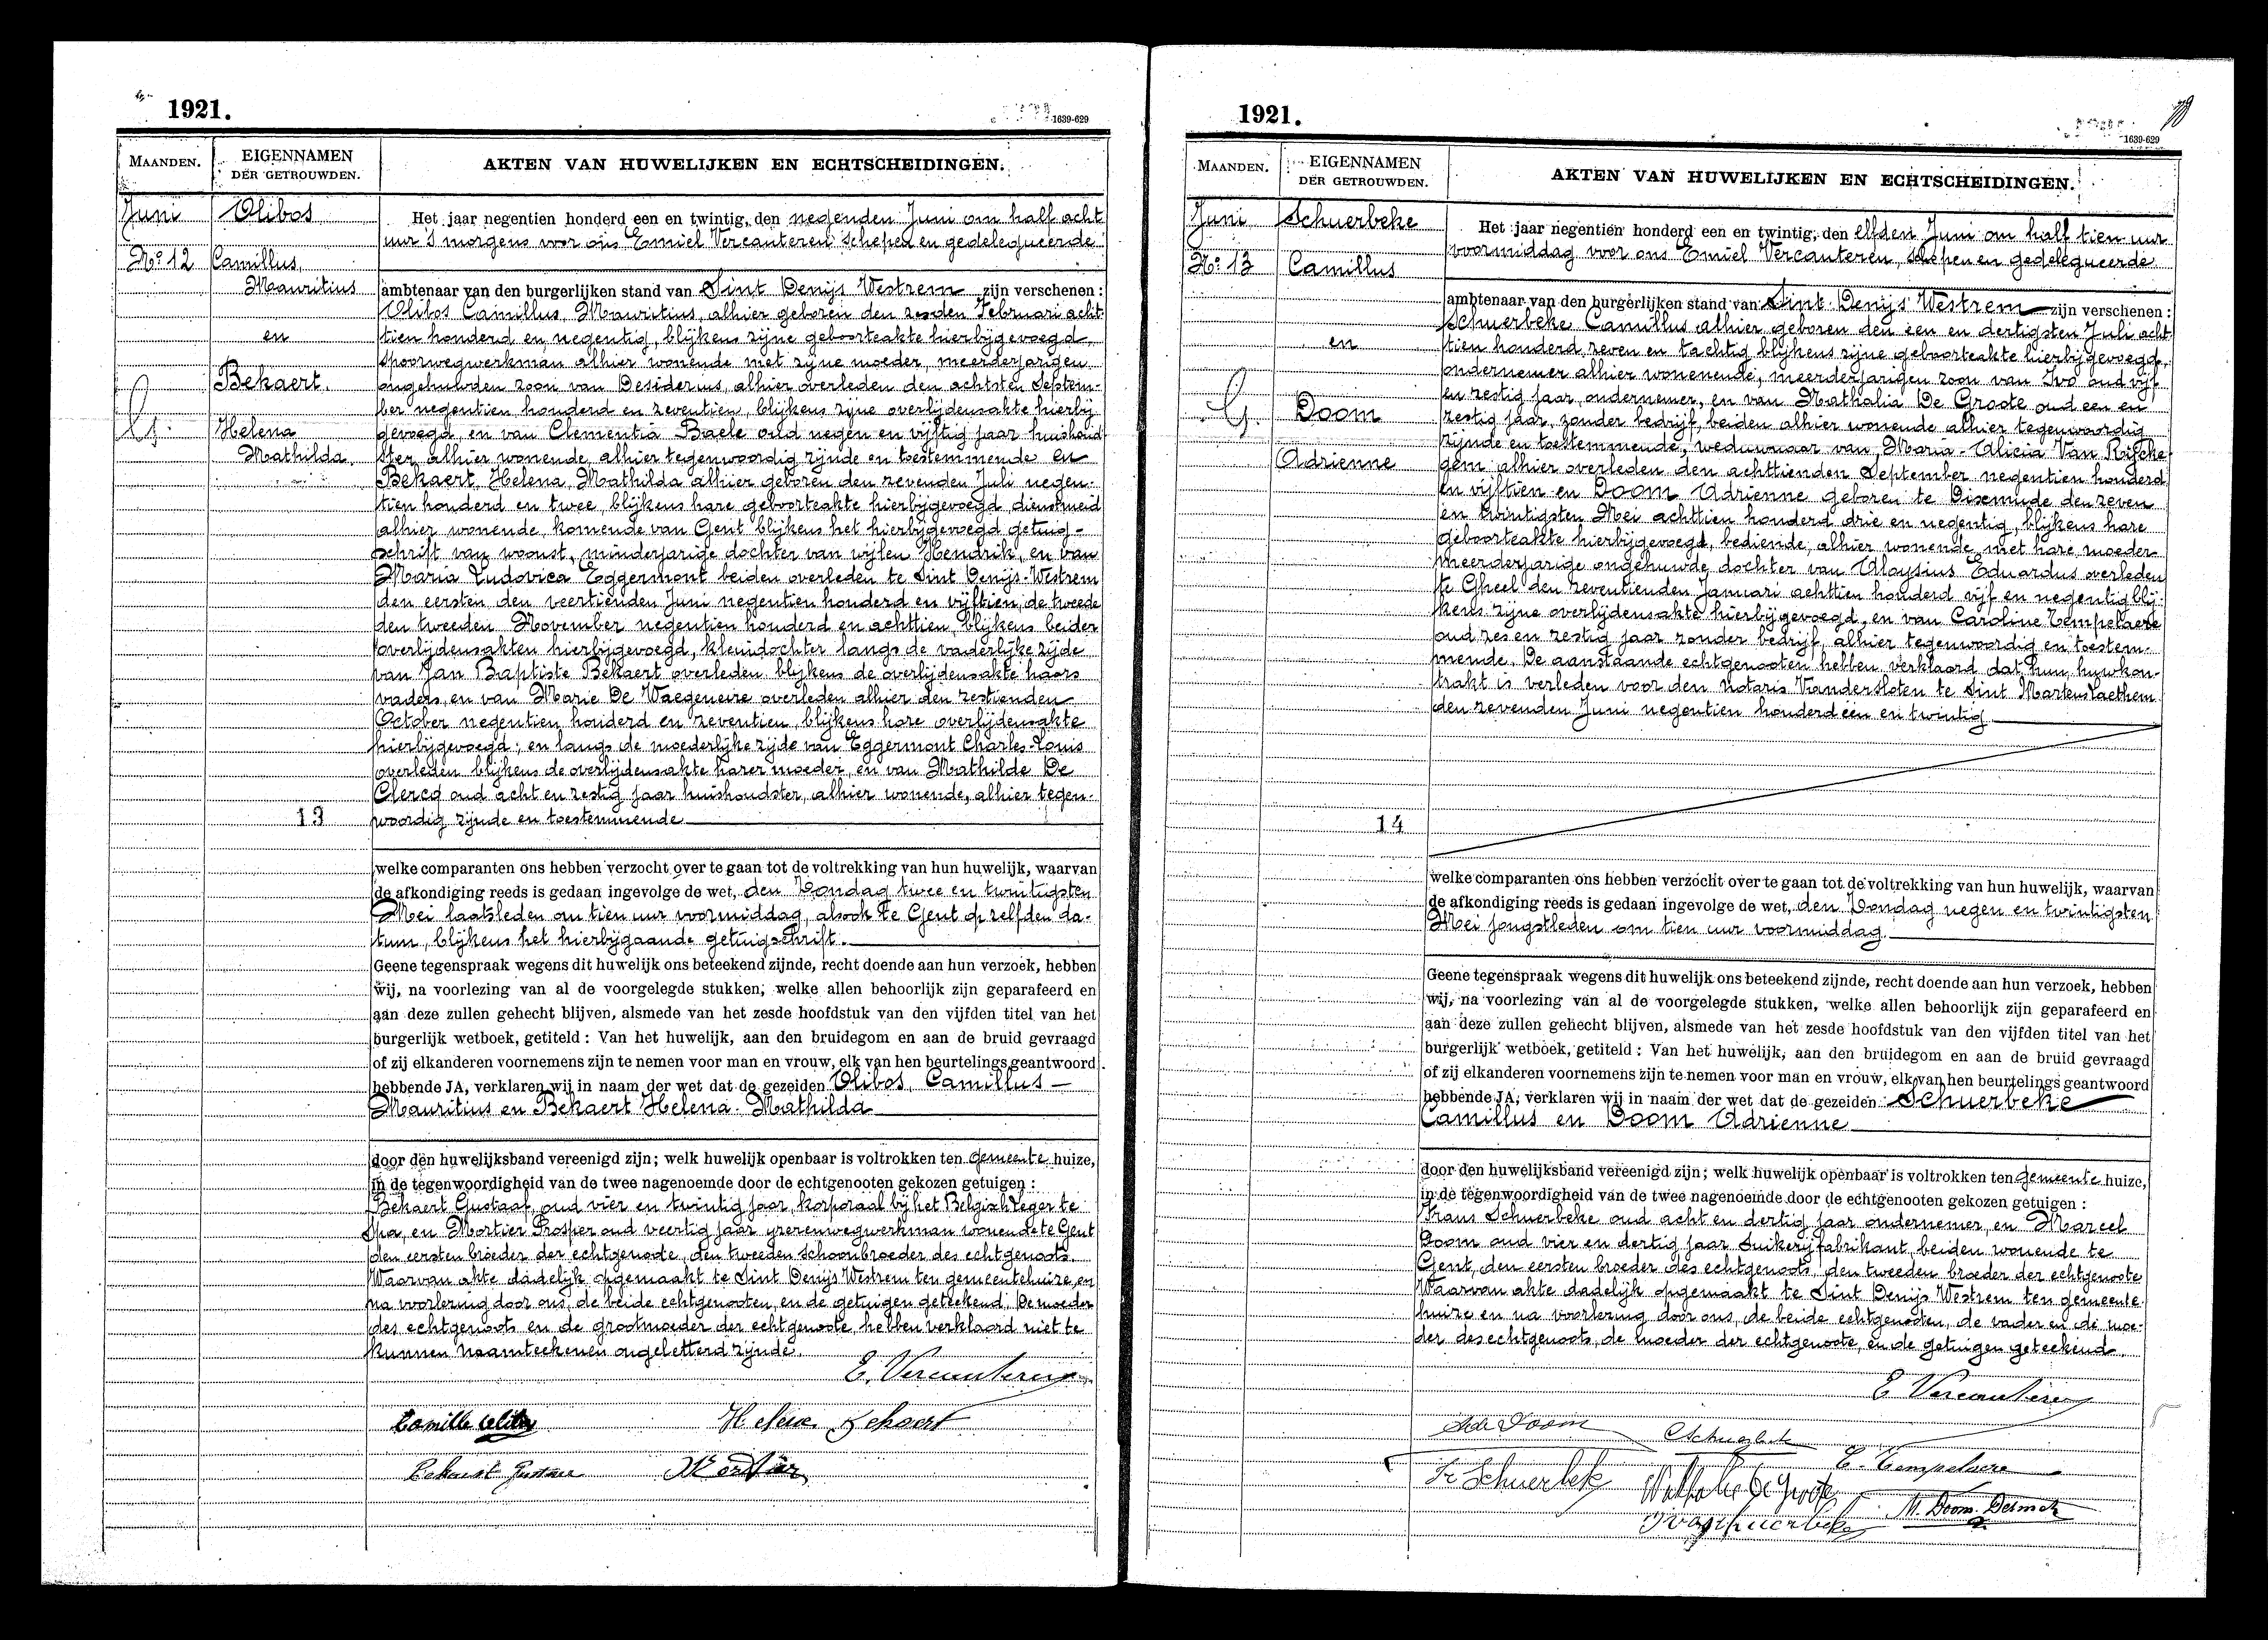 1921.
1639-629
MAANDEN.
EIGENNAMEN
DER GETROUWDEN.
AKTEN VAN HUWELIJKEN EN ECHTSCHEIDINGEN.
Juni
Olibos
Nº 12
Camillus,
Mauritius
en
Bekaert.
Helena
Mathilda.
13
Het jaar negentien honderd een en twintig, den negenden Juni om half acht
uur 's morgens voor ons Emiel Vercauteren schepen en gedelegueerde
ambtenaar van den burgerlijken stand van Sint Denijs Westrem zijn verschenen :
Olibos Camillus, Mauritius, alhier geboren den zesden Februari acht-
tien honderd en negentig, blijkens zijne geboorteakte hierbijgevoegd,
spoorwegwerkman alhier wonende met zijne moeder, meerderjarigen
ongehuwden zoon van Desiderius, alhier overleden den achtsten Septem-
ber negentien honderd en zeventien, blijkens zijne overlijdensakte hierbij
gevoegd, en van Clementia Baele oud negen en vijftig jaar huishoud
ster, alhier wonende, alhier tegenwoordig zijnde en toestemmende en
Bekaert, Helena, Mathilda alhier geboren den zevenden Juli negen-
tien honderd en twee, blijkens hare geboorteakte hierbijgevoegd, dienstmeid
alhier wonende, komende van Gent blijkens het hierbijgevoegd getuig-
schrift van woonst, minderjarige dochter van wijlen Hendrik, en van
Maria Ludovica Eggermont beiden overleden te Sint Denijs-Westrem
den eersten den veertienden Juni negentien honderd en vijftien, de tweede
den tweeden November negentien honderd en achttien, blijkens beider
overlijdensakten hierbijgevoegd, kleindochter langs de vaderlijke zijde
van Jan Baptiste Bekaert overleden blijkens de overlijdensakte haars
vaders, en van Marie De Waegeneire overleden alhier den zestienden
October negentien honderd en zeventien, blijkens hare overlijdensakte
hierbijgevoegd; en langs de moederlijke zijde van Eggermont Charles-Louis
overleden blijkens de overlijdensakte harer moeder, en van Mathilde De
Clercq oud acht en zestig jaar huishoudster, alhier wonende, alhier tegen-
woordig zijnde en toestemmende
welke comparanten ons hebben verzocht over te gaan tot de voltrekking van hun huwelijk, waarvan
de afkondiging reeds is gedaan ingevolge de wet, den Zondag twee en twintigsten
Mei laatsleden om tien uur voormiddag, alsook te Gent op zelfden da-
tum, blijkens het hierbijgaande getuigschrift.
Geene tegenspraak wegens dit huwelijk ons beteekend zijnde, recht doende aan hun verzoek, hebben
wij, na voorlezing van al de voorgelegde stukken, welke allen behoorlijk zijn geparafeerd en
aan deze zullen gehecht blijven, alsmede van het zesde hoofdstuk van den vijfden titel van het
burgerlijk wetboek, getiteld : Van het huwelijk, aan den bruidegom en aan de bruid gevraagd
of zij elkanderen voornemens zijn te nemen voor man en vrouw, elk van hen beurtelings geantwoord
hebbende JA, verklaren wij in naam der wet dat de gezeiden Olibos, Camillus —
Mauritius en Bekaert Helena-Mathilda
door den huwelijksband vereenigd zijn; welk huwelijk openbaar is voltrokken ten gemeente huize,
in de tegenwoordigheid van de twee nagenoemde door de echtgenooten gekozen getuigen :
Bekaert Gustaaf, oud vier en twintig jaar, korporaal bij het Belgisch leger te
Spa, en Mortier Prosper oud veertig jaar yzerenwegwerkman wonende te Gent
den eersten broeder der echtgenoote, den tweeden schoonbroeder des echtgenoots.
Waarvan akte dadelijk opgemaakt te Sint Denijs Westrem ten gemeentehuize, en
na voorlezing door ons, de beide echtgenooten, en de getuigen geteekend. De moeder
des echtgenoots en de grootmoeder der echtgenoote, hebben verklaard niet te
kunnen naamteekenen ongeletterd zijnde.
E. Vercauteren
Camille Olibos
Helena Bekaert
Bekaert Gustave
Mortier
1921.
1639-629
MAANDEN.
EIGENNAMEN
DER GETROUWDEN.
AKTEN VAN HUWELIJKEN EN ECHTSCHEIDINGEN.
Juni
Schuerbeke
Nº 13
Camillus
en
Doom
Adrienne
14
Het jaar negentien honderd een en twintig, den elfden Juni om half tien uur
voormiddag voor ons Emiel Vercauteren, schepen en gedelegueerde
ambtenaar van den burgerlijken stand van Sint Denijs Westrem zijn verschenen :
Schuerbeke Camillus alhier geboren den een en dertigsten Juli acht
tien honderd zeven en tachtig blijkens zijne geboorteakte hierbijgevoegd,
ondernemer alhier wonenende, meerderjarigen zoon van Ivo oud vijf
en zestig jaar, ondernemer, en van Nathalia De Groote oud een en
zestig jaar, zonder bedrijf, beiden alhier wonende alhier tegenwoordig
zijnde en toestemmende, weduwnaar van Maria-Alicia Van Rijsche
gem alhier overleden den achttienden September negentien honderd
en vijftien en Doom Adrienne geboren te Dixmude den zeven
en twintigsten Mei achttien honderd drie en negentig, blijkens hare
geboorteakte hierbijgevoegd, bediende, alhier wonende met hare moeder
meerderjarige ongehuwde dochter van Aloysius Eduardus overleden
te Gheel den zeventienden Januari achttien honderd vijf en negentig blij-
kens zijne overlijdensakte hierbijgevoegd, en van Caroline Tempelaere
oud zes en zestig jaar zonder bedrijf, alhier tegenwoordig en toestem-
mende. De aanstaande echtgenooten hebben verklaard dat hun huwkon-
trakt is verleden voor den Notaris Vandersloten te Sint Martens Laethem
den zevenden Juni negentien honderd een en twintig
welke comparanten ons hebben verzocht over te gaan tot de voltrekking van hun huwelijk, waarvan
de afkondiging reeds is gedaan ingevolge de wet, den Zondag negen en twintigsten
Mei jongstleden om tien uur voormiddag.
Geene tegenspraak wegens dit huwelijk ons beteekend zijnde, recht doende aan hun verzoek, hebben
wij, na voorlezing van al de voorgelegde stukken, welke allen behoorlijk zijn geparafeerd en
aan deze zullen gehecht blijven, alsmede van het zesde hoofdstuk van den vijfden titel van het
burgerlijk wetboek, getiteld : Van het huwelijk, aan den bruidegom en aan de bruid gevraagd
of zij elkanderen voornemens zijn te nemen voor man en vrouw, elk van hen beurtelings geantwoord
hebbende JA, verklaren wij in naam der wet dat de gezeiden Schuerbeke
Camillus en Doom Adrienne
door den huwelijksband vereenigd zijn; welk huwelijk openbaar is voltrokken ten gemeente huize,
in de tegenwoordigheid van de twee nagenoemde door de echtgenooten gekozen getuigen :
Frans Schuerbeke oud acht en dertig jaar ondernemer, en Marcel
Doom oud vier en dertig jaar Suikerijfabrikant, beiden wonende te
Gent, den eersten broeder des echtgenoots, den tweeden broeder der echtgenoote
Waarvan akte dadelijk opgemaakt te Sint Denijs Westrem ten gemeente
huize en na voorlezing door ons, de beide echtgenooten, de vader en de moe-
der des echtgenoots, de moeder der echtgenoote, en de getuigen geteekend.
E Vercauteren
Adr Doom
C Schuerbeke
C. Tempelaere
Fr Schuerbeke
Nathalie De Groote
M. Doom-Desmet
Ivo Schuerbeke